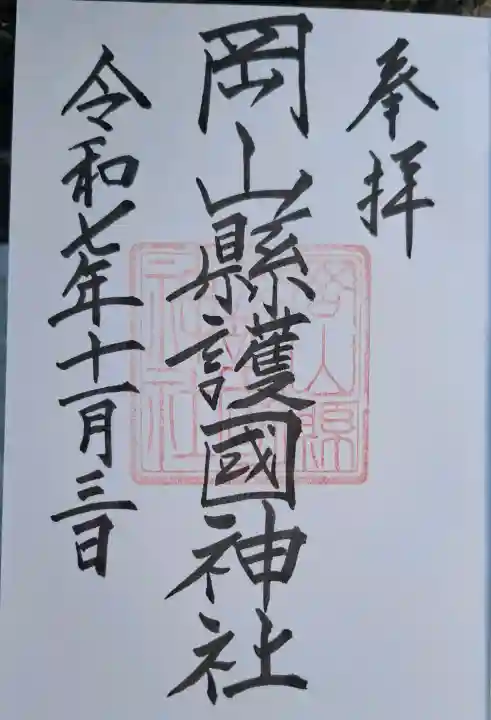 奉拝
岡山縣護國神社
令和七年十一月三日